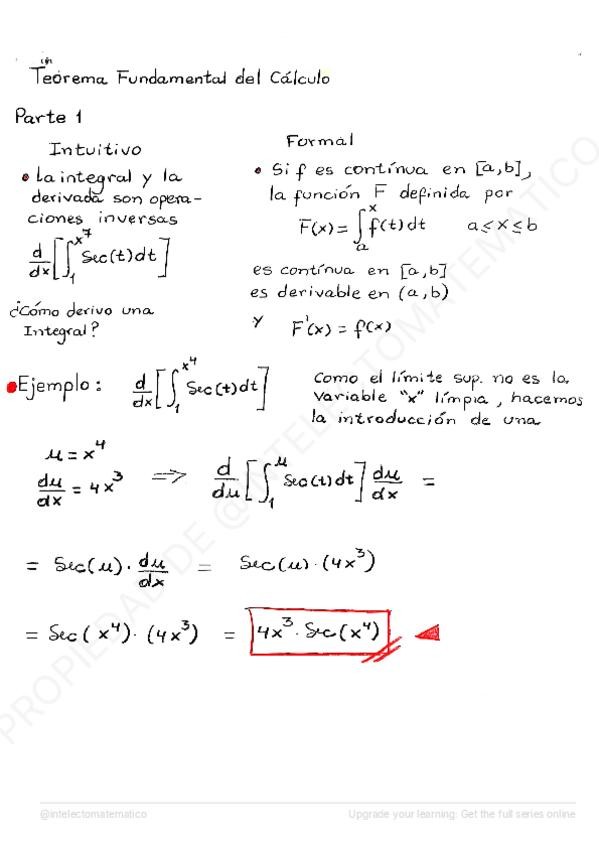 Teorema Fundamental del Cálculo
Parte 1
Intuitivo
• La integral y la
derivada son opera-
ciones inversas
d/dx [∫₁^(x⁷) Sec(t)dt]
¿Cómo derivo una
Integral?
Formal
• Si f es contínua en [a,b],
la función F definida por
F(x) = ∫ₐˣ f(t)dt a≤x≤b
es contínua en [a,b]
es derivable en (a,b)
y F'(x) = f(x)
• Ejemplo: d/dx [∫₁^(x⁴) Sec(t)dt]
Como el límite sup. no es la
variable "x" límpia, hacemos
la introducción de una
u = x⁴
du/dx = 4x³ ⟹ d/du [∫₁^u Sec(t)dt] du/dx =
= Sec(u) · du/dx = Sec(u) · (4x³)
= Sec(x⁴) · (4x³) = 4x³ · Sec(x⁴)
PROPIEDAD DE @INTELECTOMATEMATICO
@intelectomatematico
Upgrade your learning: Get the full series online